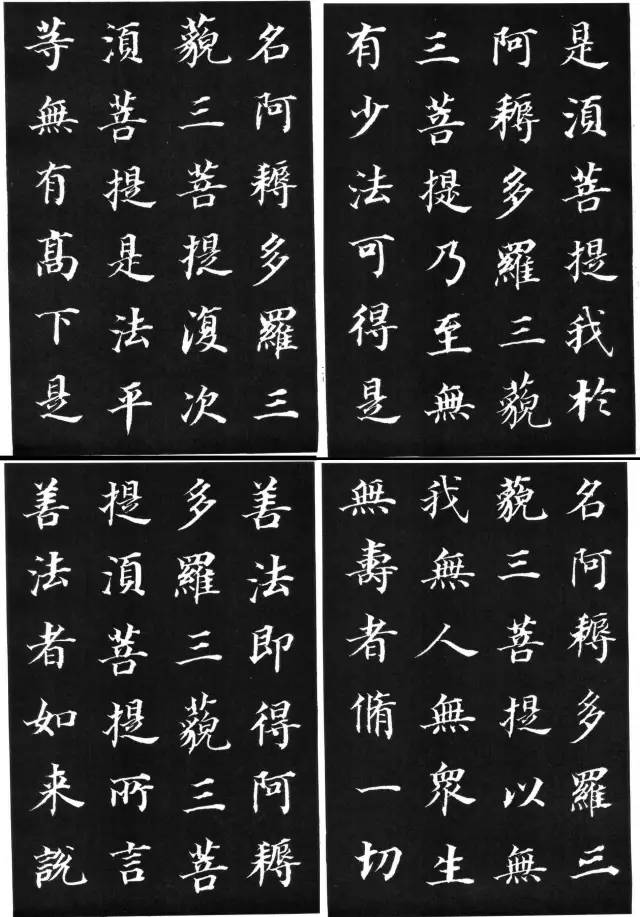 是湏菩提我於
阿耨多羅三藐
三菩提乃至無
有少法可得是
名阿耨多羅三
藐三菩提復次
湏菩提是法平
等無有髙下是
名阿耨多羅三
藐三菩提以無
我無人無眾生
無壽者脩一切
善法即得阿耨
多羅三藐三菩
提湏菩提所言
善法者如来說